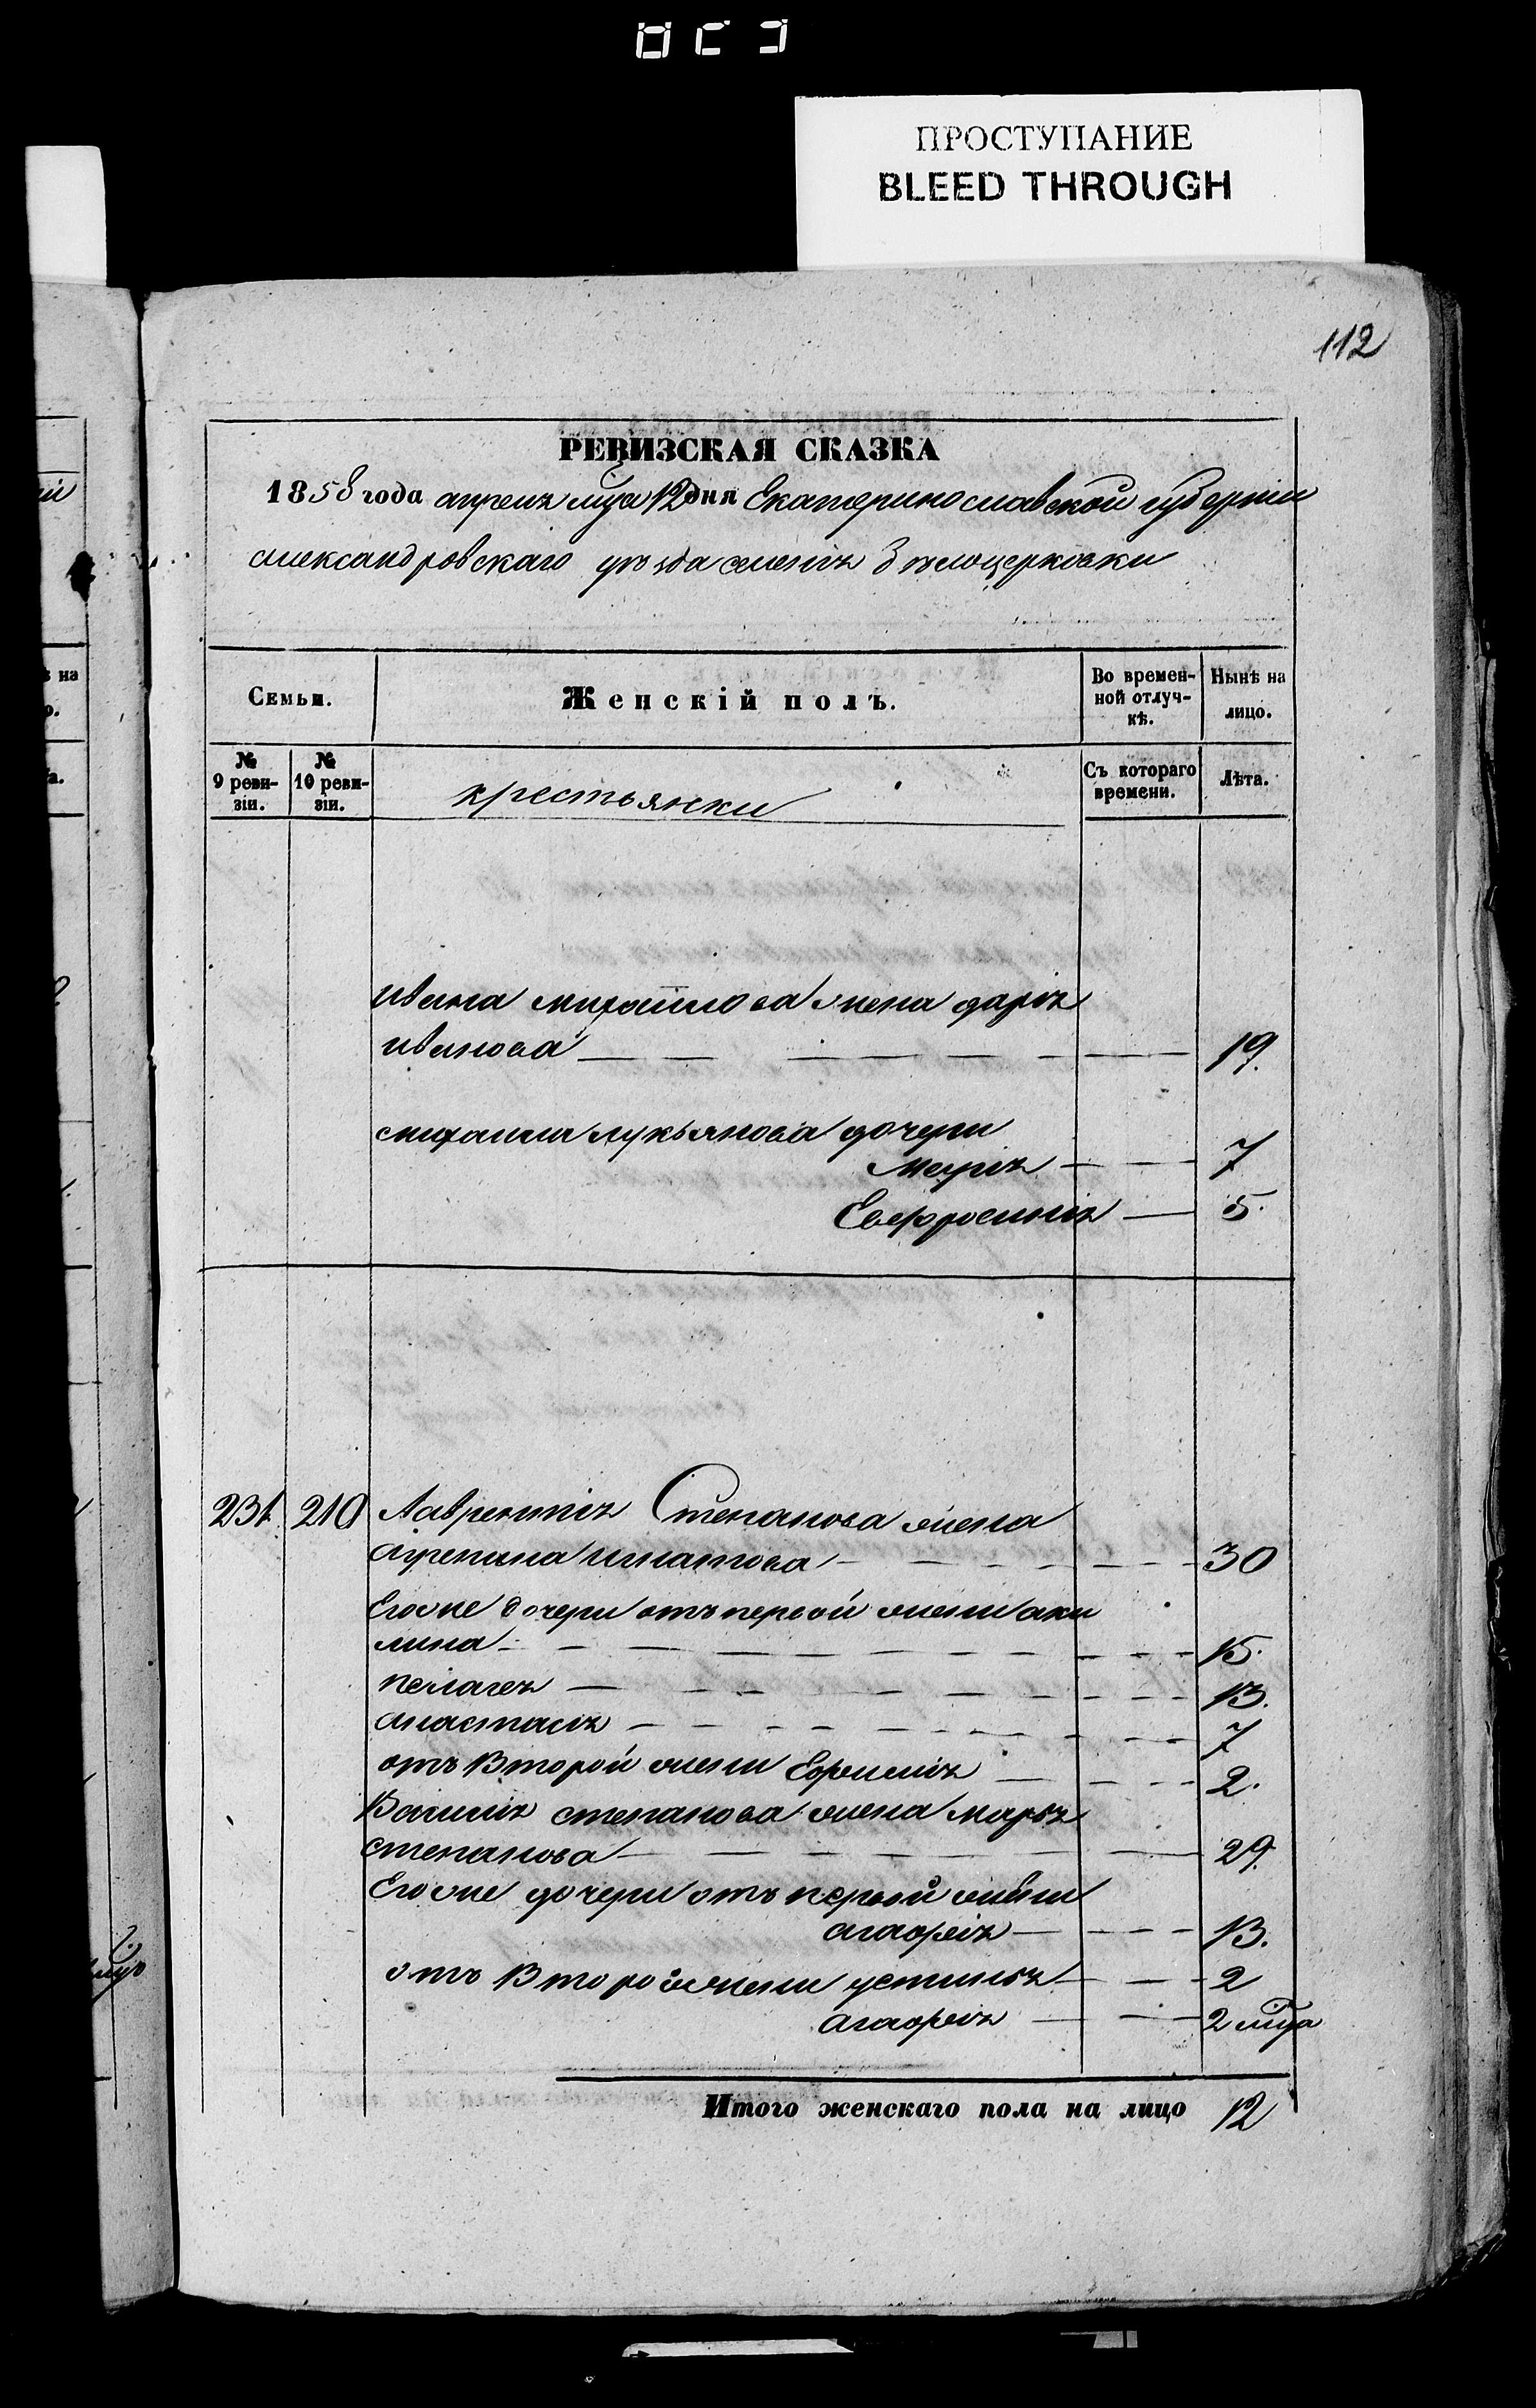 ПРОСТУПАНИЕ
BLEED THROUGH
112
РЕВИЗСКАЯ СКАЗКА
1858 года апреля мца 12 дня Екатеринославской губерніи
александровскаго уѣзда селенія Бѣлоцерковки
Семьи.
Женскій полъ.
Во времен-
ной отлуч-
кѣ.
Нынѣ на
лицо.
№
9 реви-
зіи.
№
10 реви-
зіи.
крестьянки
Съ котораго
времени.
Лѣта.
ивана михайлова жена дарія
иванова 19.
михаила лукьянова дочери
Марія 7
Евфросинія 5.
231. 210 Лаврентія Степанова жена
агрепина игнатова 30
Егоже дочери отъ первой жены аки
лина 15.
пелагея 13.
анастасія 7
отъ Второй жены Ефимія 2.
Василія степанова жена марья
степанова 29.
Егоже дочери отъ первой жены
агафія 13.
отъ Второй жены устинья 2
агафія 2 мца
Итого женскаго пола на лицо 12